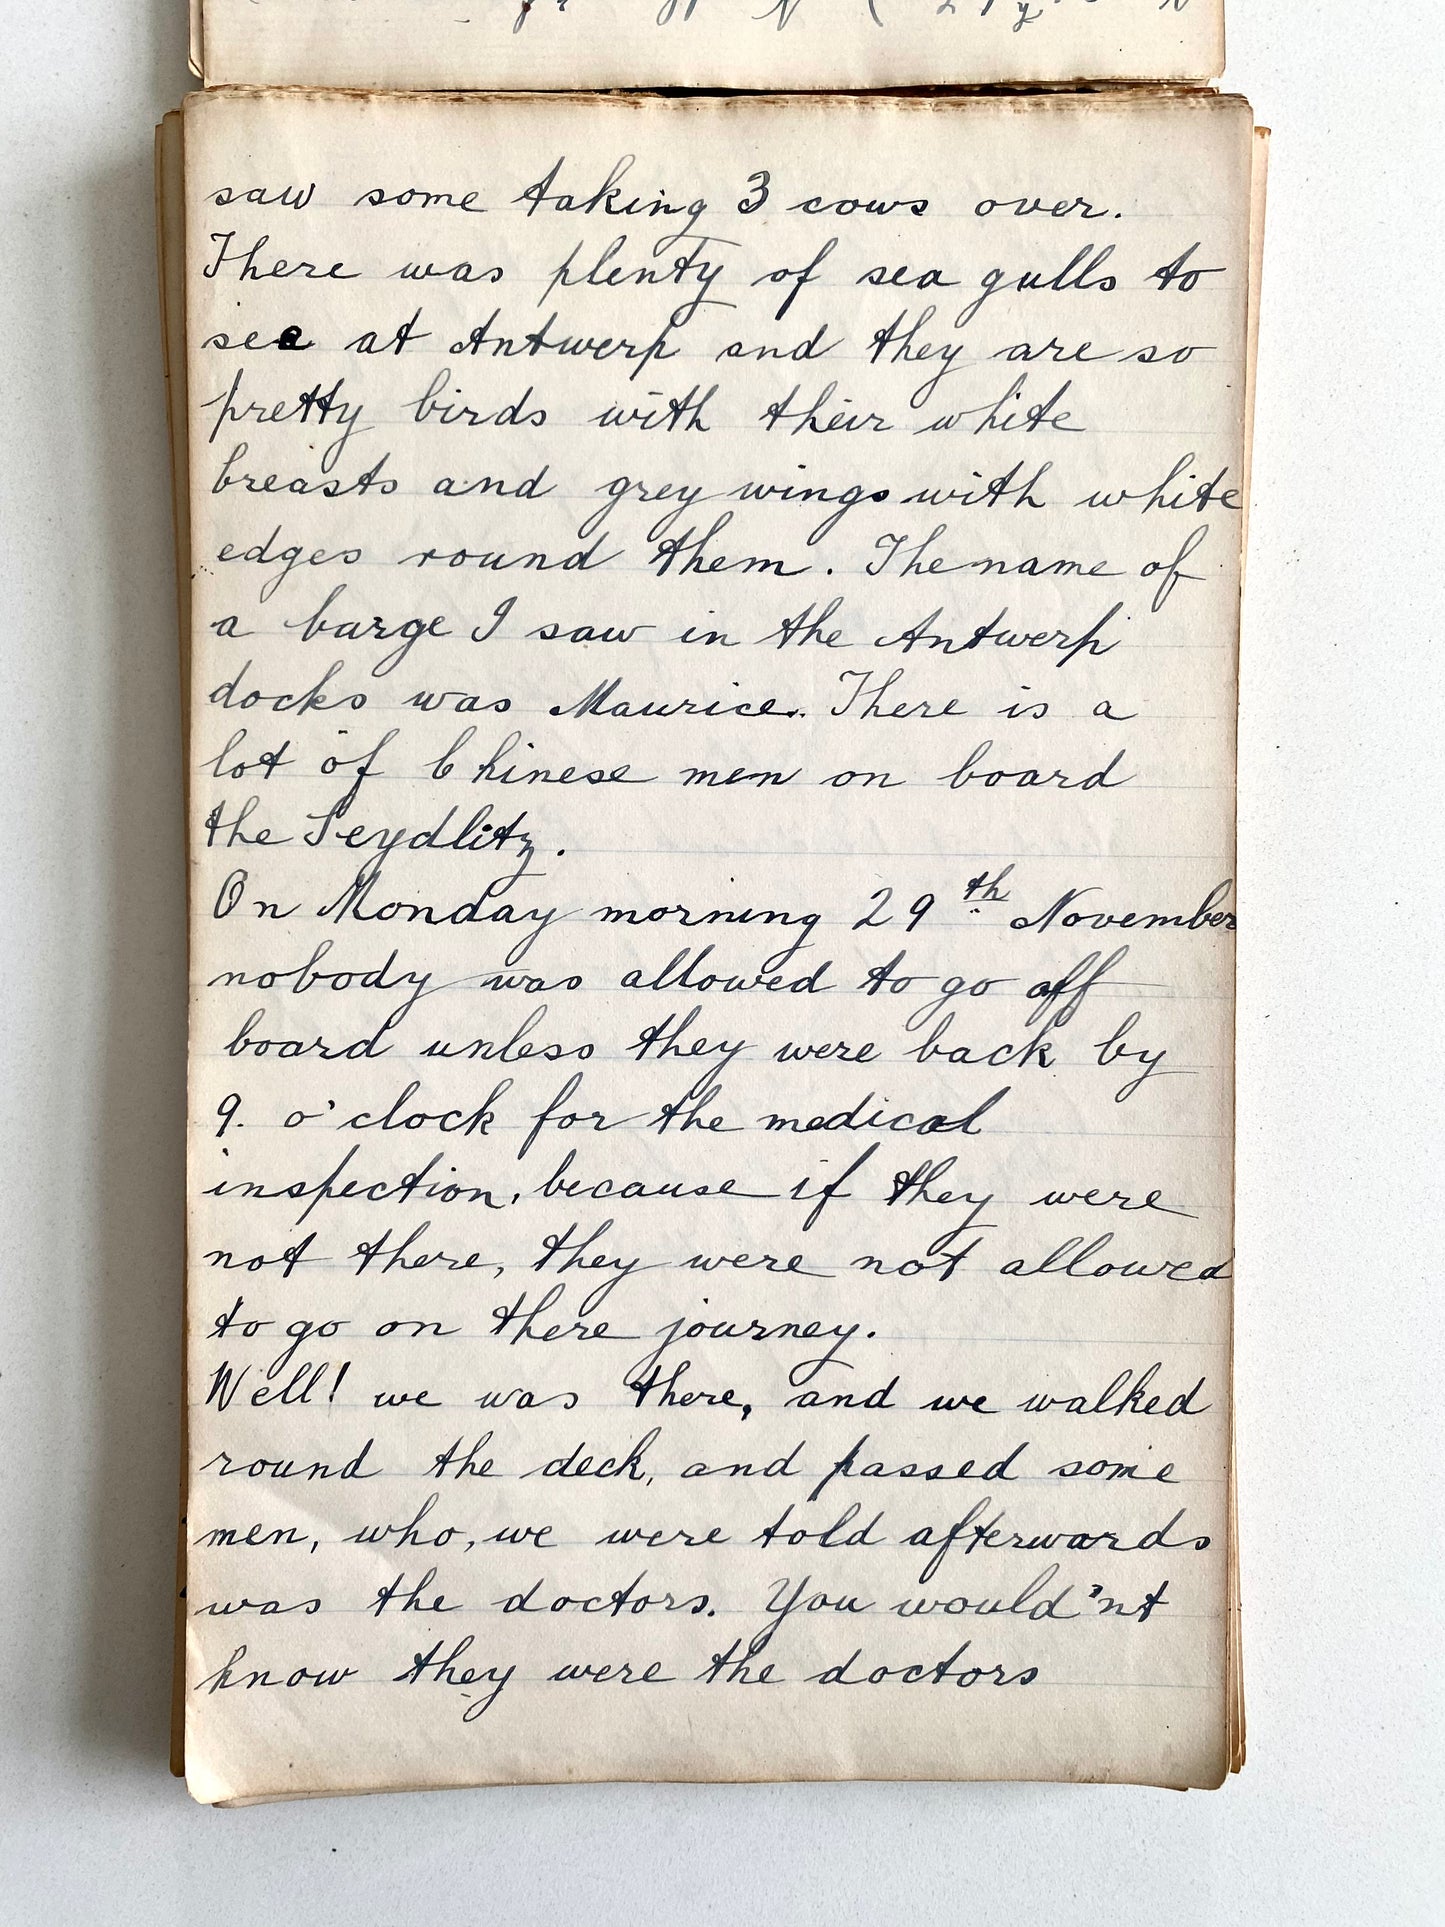 saw some taking 3 cows over.
There was plenty of sea gulls to
see at Antwerp and they are so
pretty birds with their white
breasts and grey wings with white
edges round them. The name of
a barge I saw in the Antwerp
docks was Maurice. There is a
lot of Chinese men on board
the Seydlitz.
On Monday morning 29th November
nobody was allowed to go off
board unless they were back by
9. o'clock for the medical
inspection, because if they were
not there, they were not allowed
to go on there journey.
Well! we was there, and we walked
round the deck, and passed some
men, who, we were told afterwards
was the doctors. You would'nt
know they were the doctors